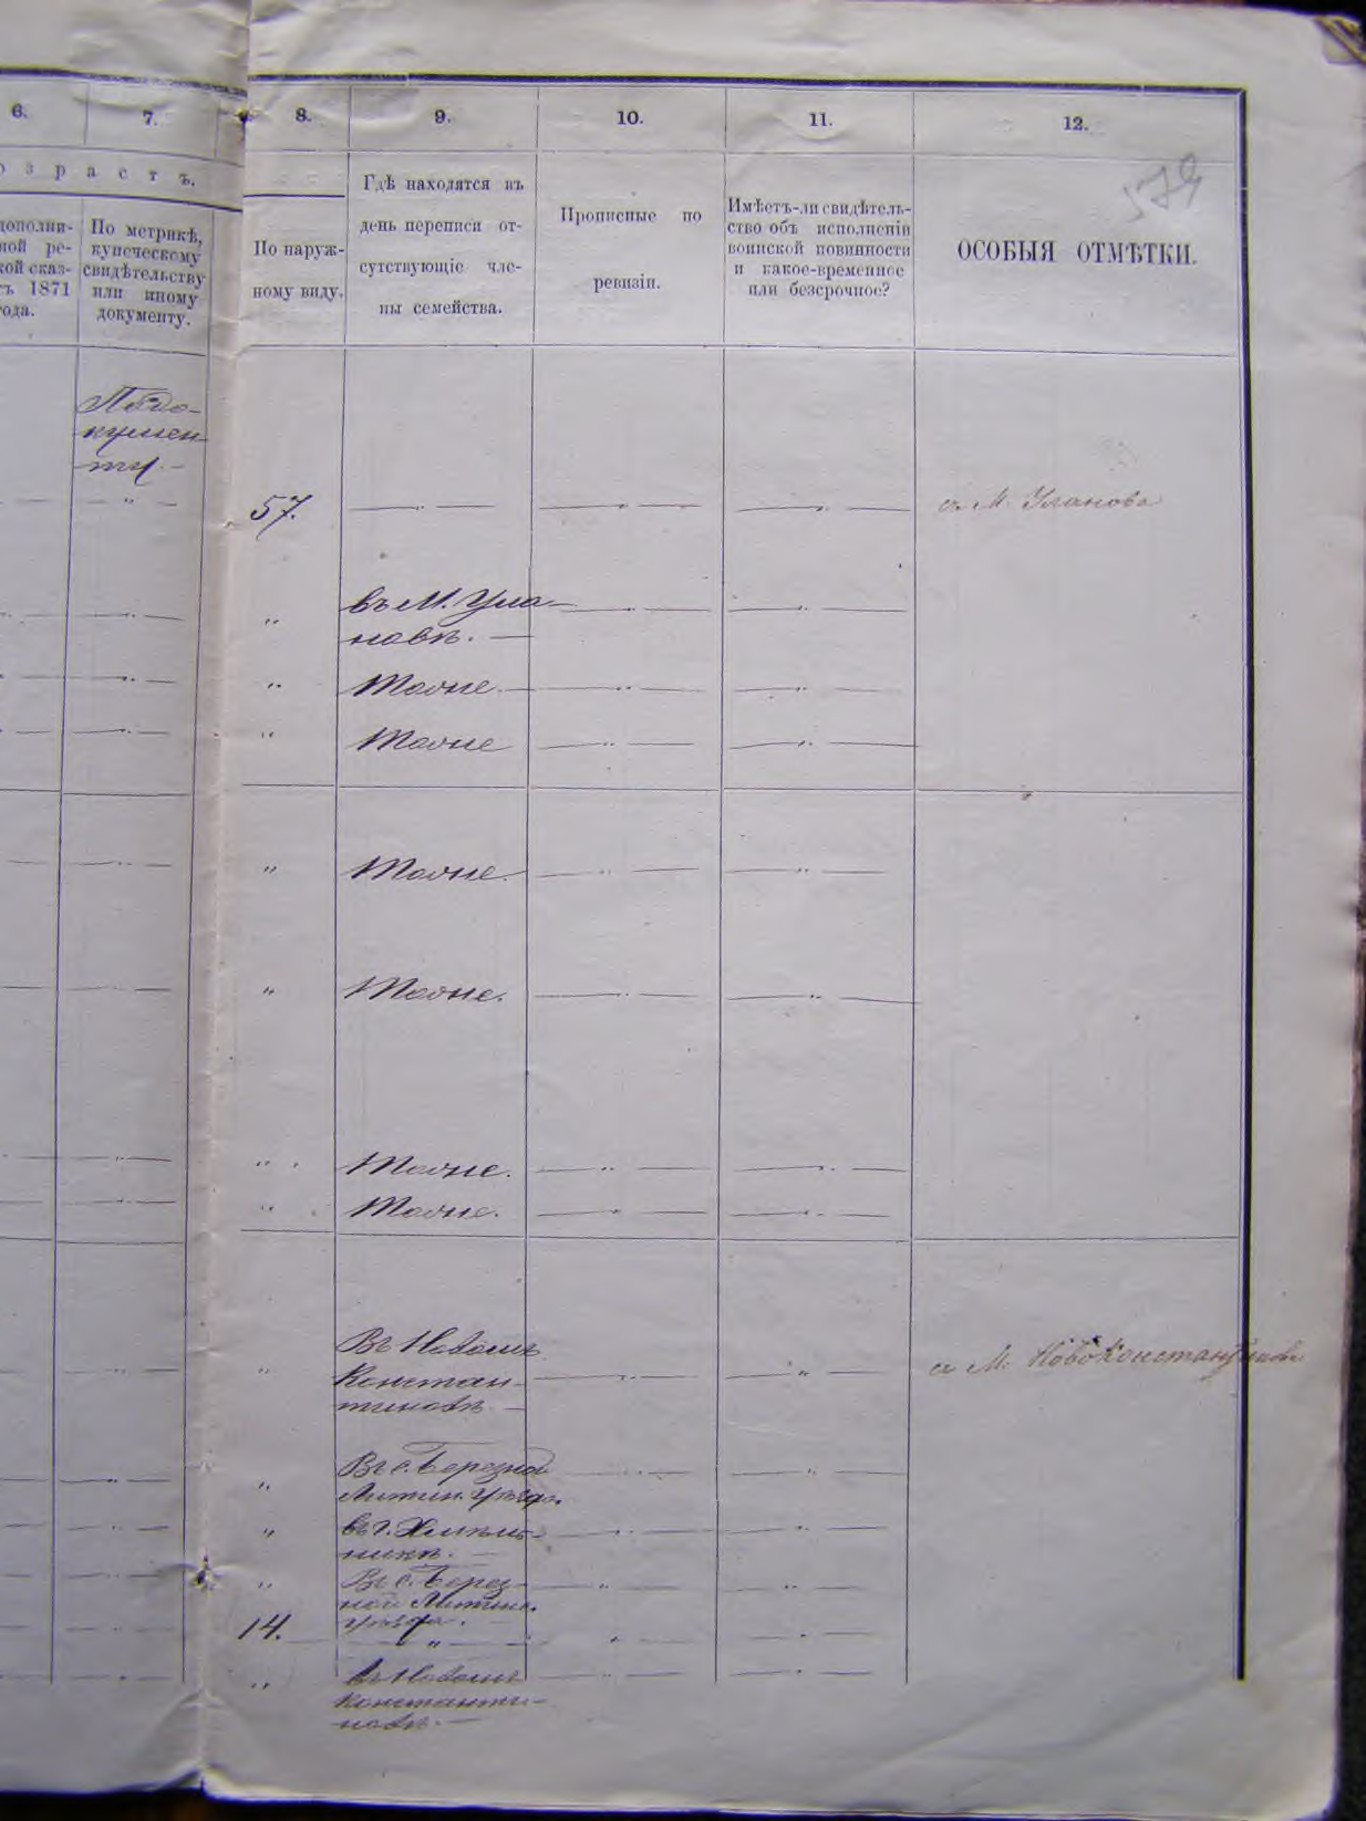 6.
7.
8.
9.
10.
11.
12.
озрастъ.
579
дополни-
ной ре-
кой сказ-
съ 1871
года.
По метрикѣ,
купеческому
свидѣтельству
или иному
документу.
По наруж-
ному виду.
Гдѣ находятся въ
день переписи от-
сутствующіе чле-
ны семейства.
Прописные по
ревизіи.
Имѣетъ-ли свидѣтель-
ство объ исполненіи
воинской повинности
и какое-временное
или безсрочное?
ОСОБЫЯ ОТМѢТКИ.
По до-
кумен-
ту. —
— „ —
57.
— „ —
— „ —
— „ —
М. Уланова
— „ —
„
въ М. Ула-
новѣ. —
— „ —
— „ —
— „ —
„
Тоже. —
— „ —
— „ —
— „ —
„
Тоже
— „ —
— „ —
— „ —
„
Тоже.
— „ —
— „ —
— „ —
„
Тоже.
— „ —
— „ —
— „ —
„
Тоже.
— „ —
— „ —
— „ —
„
Тоже.
— „ —
— „ —
— „ —
„
Въ Новомъ
Констан-
тиновѣ —
— „ —
— „ —
М. Новоконстантинова
— „ —
„
Въ с. Березной
Литин. уѣзда.
— „ —
— „ —
— „ —
„
въ г. Хмѣль-
никѣ. —
— „ —
— „ —
— „ —
„
Въ с. Берез-
ной Литинс.
уѣзда. —
— „ —
— „ —
— „ —
14.
— „ —
— „ —
— „ —
— „ —
„
въ Новомъ
Константи-
новѣ. —
— „ —
— „ —